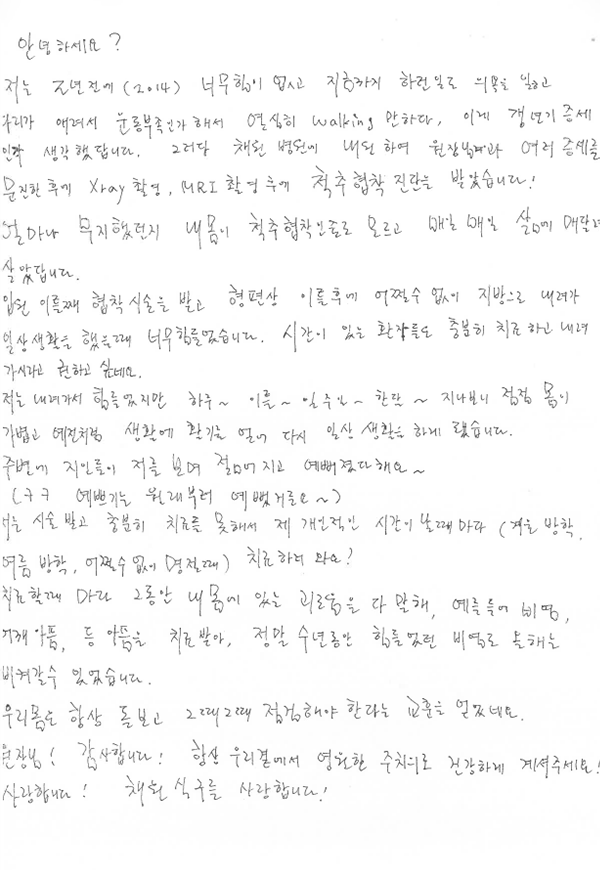 안녕하세요?
저는 2년전에 (2014) 너무힘이 없시고 지하까지 하련일로 의욕을 잃고
우리가 애려서 운동부족인가해서 열심히 walking 만하다, 이게 갱년기 증세
인가 생각했답니다. 그러다 채원 병원에 내원하여 원장님께과 여러 증세를
문진한 후에 Xray 촬영, MRI 촬영후에 척추협착 진단을 받았습니다!
얼마나 무지했던지 내몸이 척추협착인줄로 모르고 매일 매일 삶에 매달려
살았답니다.
입원 이틀째 협착시술을 받고 형편상 이틀후에 어쩔수 없이 지방으로 내려가
일상생활을 했을때 너무힘들었습니다. 시간이 있는 환자들은 충분히 치료하고 내려
가시라고 권하고 싶네요.
저는 내려가서 힘들었지만 하루~ 이틀~ 일주일~ 한달~ 지나보니 점점 몸이
가볍고 예전처럼 생활에 활기를 얻어 다시 일상 생활을 하게 됐습니다.
주변에 지인들이 저를 보며 젊어지고 예뻐졌다해요~
(ㅋㅋ 예쁘기는 원래부터 예뻤거든요~)
저는 시술 받고 충분히 치료를 못해서 제 개인적인 시간이 날때마다 (겨울 방학,
여름 방학, 어쩔수 없이 명절때) 치료하러 와요?
치료할때 마다 그동안 내몸에 있는 괴로움을 다 말해, 예를들어 비염,
어깨아픔, 등 아픔을 치료받아, 정말 수년동안 힘들었던 비염로 올해는
비켜갈수 있었습니다.
우리몸도 항상 돌보고 그때그때 점검해야 한다는 교훈을 얻었네요.
원장님! 감사합니다! 항상 우리곁에서 영원한 주치의로 건강하게 계셔주세요!
사랑합니다! 채원 식구를 사랑합니다!